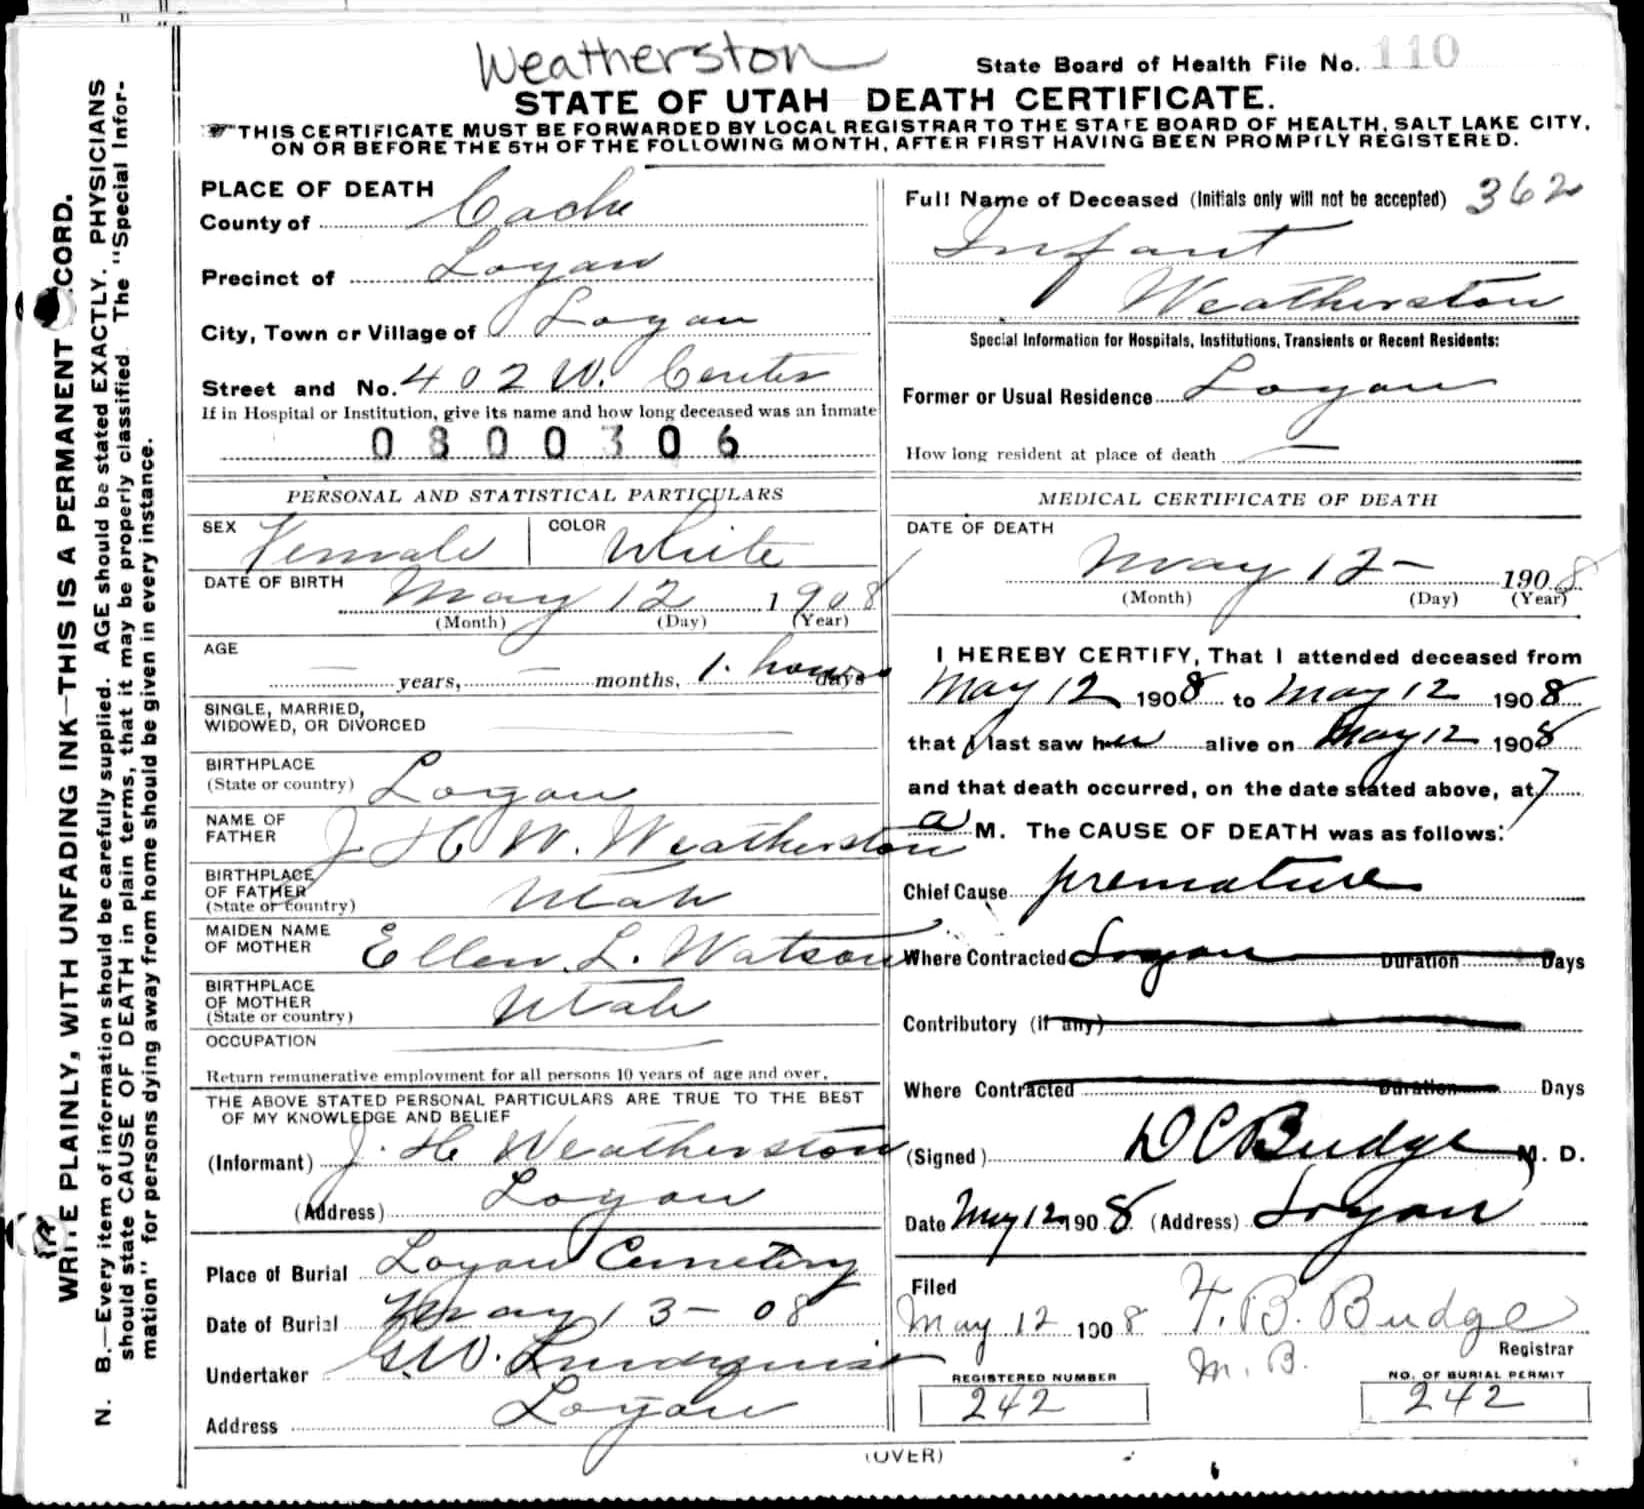 Weatherston
State Board of Health File No. 110
STATE OF UTAH DEATH CERTIFICATE.
THIS CERTIFICATE MUST BE FORWARDED BY LOCAL REGISTRAR TO THE STATE BOARD OF HEALTH, SALT LAKE CITY,
ON OR BEFORE THE 5TH OF THE FOLLOWING MONTH, AFTER FIRST HAVING BEEN PROMPTLY REGISTERED.
WRITE PLAINLY, WITH UNFADING INK—THIS IS A PERMANENT CORD.
N. B.—Every item of information should be carefully supplied. AGE should be stated EXACTLY. PHYSICIANS
should state CAUSE OF DEATH in plain terms, that it may be properly classified. The "Special Infor-
mation" for persons dying away from home should be given in every instance.
PLACE OF DEATH
County of Cache
Precinct of Logan
City, Town or Village of Logan
Street and No. 402 W. Center
If in Hospital or Institution, give its name and how long deceased was an inmate
0800306
PERSONAL AND STATISTICAL PARTICULARS
SEX Female COLOR White
DATE OF BIRTH May 12 1908
(Month) (Day) (Year)
AGE
— years, — months, 1. hours days
SINGLE, MARRIED,
WIDOWED, OR DIVORCED
BIRTHPLACE
(State or country) Logan
NAME OF
FATHER J. H. W. Weatherston
BIRTHPLACE
OF FATHER
(State or country) Utah
MAIDEN NAME
OF MOTHER Ellen L. Watson
BIRTHPLACE
OF MOTHER
(State or country) Utah
OCCUPATION
Return remunerative employment for all persons 10 years of age and over.
THE ABOVE STATED PERSONAL PARTICULARS ARE TRUE TO THE BEST
OF MY KNOWLEDGE AND BELIEF
(Informant) J. H. Weatherston
(Address) Logan
Place of Burial Logan Cemetery
Date of Burial May 13 - 08
Undertaker G W. Lundquist
Address Logan
Full Name of Deceased (Initials only will not be accepted) 362
Infant
Weatherston
Special Information for Hospitals, Institutions, Transients or Recent Residents:
Former or Usual Residence Logan
How long resident at place of death —
MEDICAL CERTIFICATE OF DEATH
DATE OF DEATH
May 12 - 1908
(Month) (Day) (Year)
I HEREBY CERTIFY, That I attended deceased from
May 12 1908 to May 12 1908
that I last saw her alive on May 12 1908
and that death occurred, on the date stated above, at 7
a M. The CAUSE OF DEATH was as follows:
Chief Cause premature
Where Contracted Logan Duration Days
Contributory (if any)
Where Contracted Duration Days
(Signed) D C Budge M. D.
Date May 12 1908 (Address) Logan
Filed
May 12 1908 F. B. Budge
Registrar
M. B.
REGISTERED NUMBER
242
NO. OF BURIAL PERMIT
242
(OVER)